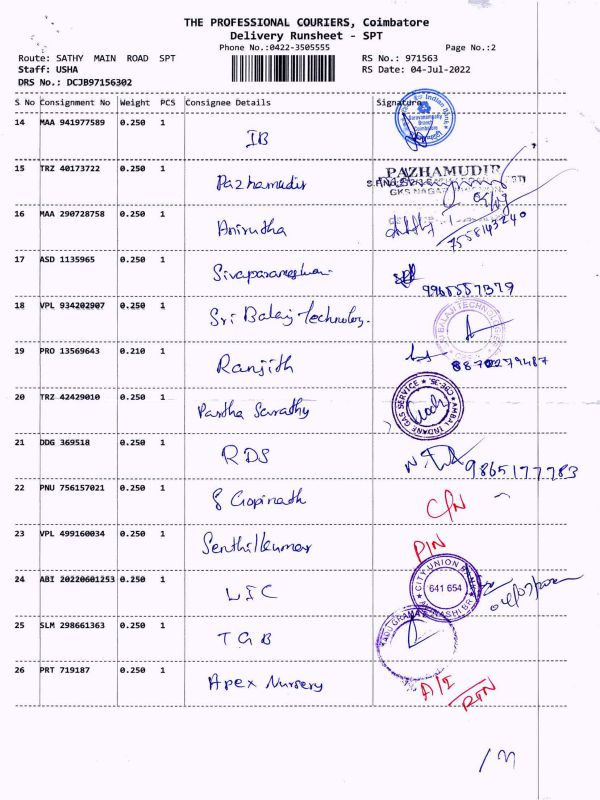 THE PROFESSIONAL COURIERS, Coimbatore
Delivery Runsheet - SPT
Phone No.:0422-3505555 Page No.:2
Route: SATHY MAIN ROAD SPT RS No.: 971563
Staff: USHA RS Date: 04-Jul-2022
DRS No.: DCJB97156302
S No Consignment No Weight PCS Consignee Details Signature
14 MAA 941977589 0.250 1 IB
Indian Bank
15 TRZ 40173722 0.250 1 Pazhamudir PAZHAMUDIR
GKS NAGAR
16 MAA 290728758 0.250 1 Anirudha 7558143240
17 ASD 1135965 0.250 1 9965557379
18 VPL 934202907 0.250 1 Sri Balaji Technology.
BALAJI TECHNOLOGIES
19 PRO 13569643 0.210 1 Ranjith 8870279487
20 TRZ 42429010 0.250 1 Partha Sarathy
AMBAL INDANE GAS SERVICE ★ CBE-35 ★
21 DDG 369518 0.250 1 RDS 9865177783
22 PNU 756157021 0.250 1 S Gopinath C/N
23 VPL 499160034 0.250 1 Senthilkumar P/N
24 ABI 20220601253 0.250 1 LIC
CITY UNION BANK
641 654
25 SLM 298661363 0.250 1 TGB
26 PRT 719187 0.250 1 Apex Nursery A/I
RTN